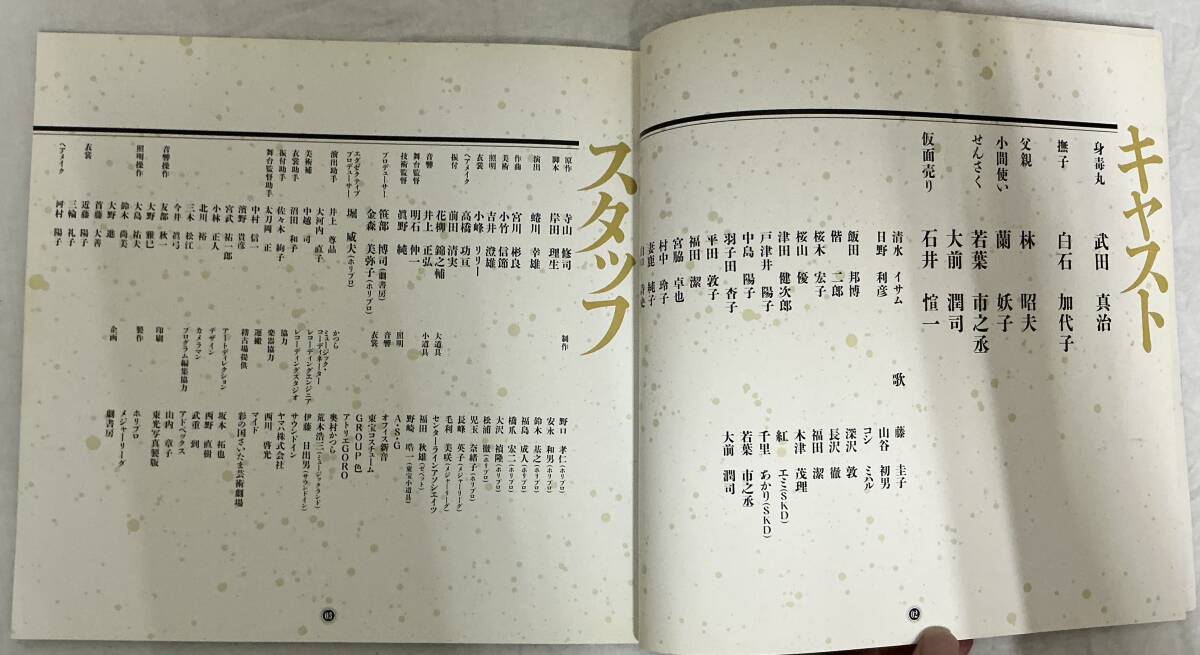 キャスト
身毒丸 武田 真治
撫子 白石 加代子
父親 林 昭夫
小間使い 蘭 妖子
せんさく 若葉 市之丞
大前 潤司
仮面売り 石井 愃一
清水 イサム
日野 利彦
飯田 邦博
偕 二郎
桜木 宏子
桜山 優
津田 健次郎
戸津井 陽子
中島 陽子
羽子田 杏子
平田 敦子
福田 潔
宮脇 卓也
村中 玲子
妻鹿 純子
歌 藤 圭子
山谷 初男
コン ミハル
深沢 敦
長沢 徹
福田 潔
木津 茂理
紅 エミ(SKD)
千里 あかり(SKD)
若葉 市之丞
大前 潤司
02
スタッフ
原作 寺山 修司
脚本 岸田 理生
演出 蜷川 幸雄
作曲 宮川 彬良
美術 小竹 信節
照明 吉井 澄雄
衣裳 小峰 リリー
ヘアメイク 高橋 功亘
振付 前田 清実
花柳 錦之輔
音響 井上 正弘
舞台監督 明石 伸一
技術監督 眞野 純
プロデューサー 笹部 博司(劇書房)
金森 美弥子(ホリプロ)
エグゼクティブプロデューサー 堀 威夫(ホリプロ)
演出助手 井上 尊晶
大河内 直子
美術補 中越 司
衣裳助手 沼田 和子
振付助手 佐々木 絢子
舞台監督助手 太刀岡 正
中村 信一
濱野 貴彦
宮武 祐一郎
小林 正人
北川 裕
三木 松江
今井 眞弓
音響操作 友部 秋一
大野 雅巳
照明操作 大島 祐夫
鈴木 尚美
大野 進
衣裳 首藤 大善
近藤 陽子
ヘアメイク 三輪 礼子
河村 陽子
制作 野口 孝仁(ホリプロ)
安永 和男(ホリプロ)
鈴木 基之(ホリプロ)
福島 成人(ホリプロ)
橋爪 宏二(ホリプロ)
大沢 禎隆(ホリプロ)
松浦 徹(ホリプロ)
児玉 奈緒子(ホリプロ)
長峰 英子(メジャーリーグ)
毛利 美咲(メジャーリーグ)
大道具 センターラインアソシエイツ
小道具 福田 秋雄(ゼペット)
野崎 皓一(東宝小道具)
照明 A・S・G
音響 オフィス新音
衣裳 東宝コスチューム
GROUP色
アトリエGORO
かつら 奥村かつら
ミュージック・コーディネーター 荒木浩三(ミュージックランド)
レコーディングエンジニア 伊藤 日出男(サウンドイン)
レコーディングスタジオ サウンドイン
協力 ヤマハ株式会社
楽器協力 西川 啓光
運搬 マイド
稽古場提供 彩の国さいたま芸術劇場
アートディレクション 坂本 拓也
デザイン 西野 直樹
カメラマン 武重 到
プログラム編集協力 アドペックス
山内 章子
印刷 東光写真製版
製作 ホリプロ
メジャーリーグ
企画 劇書房
03